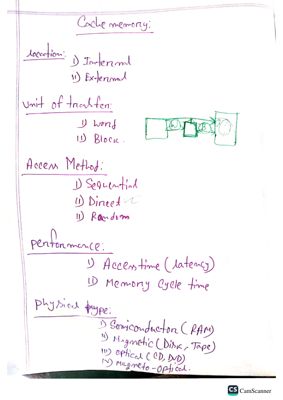 Cache memory:
Location: i) Internal
ii) External
Unit of transfer:
i) Word
ii) Block.
Access Method:
i) Sequential
ii) Direct
iii) Random
Performance:
i) Access time (latency)
ii) Memory Cycle time
Physical type:
i) Semiconductor (RAM)
ii) Magnetic (Disk, Tape)
iii) Optical (CD, DVD)
iv) Magneto-Optical.
CS CamScanner